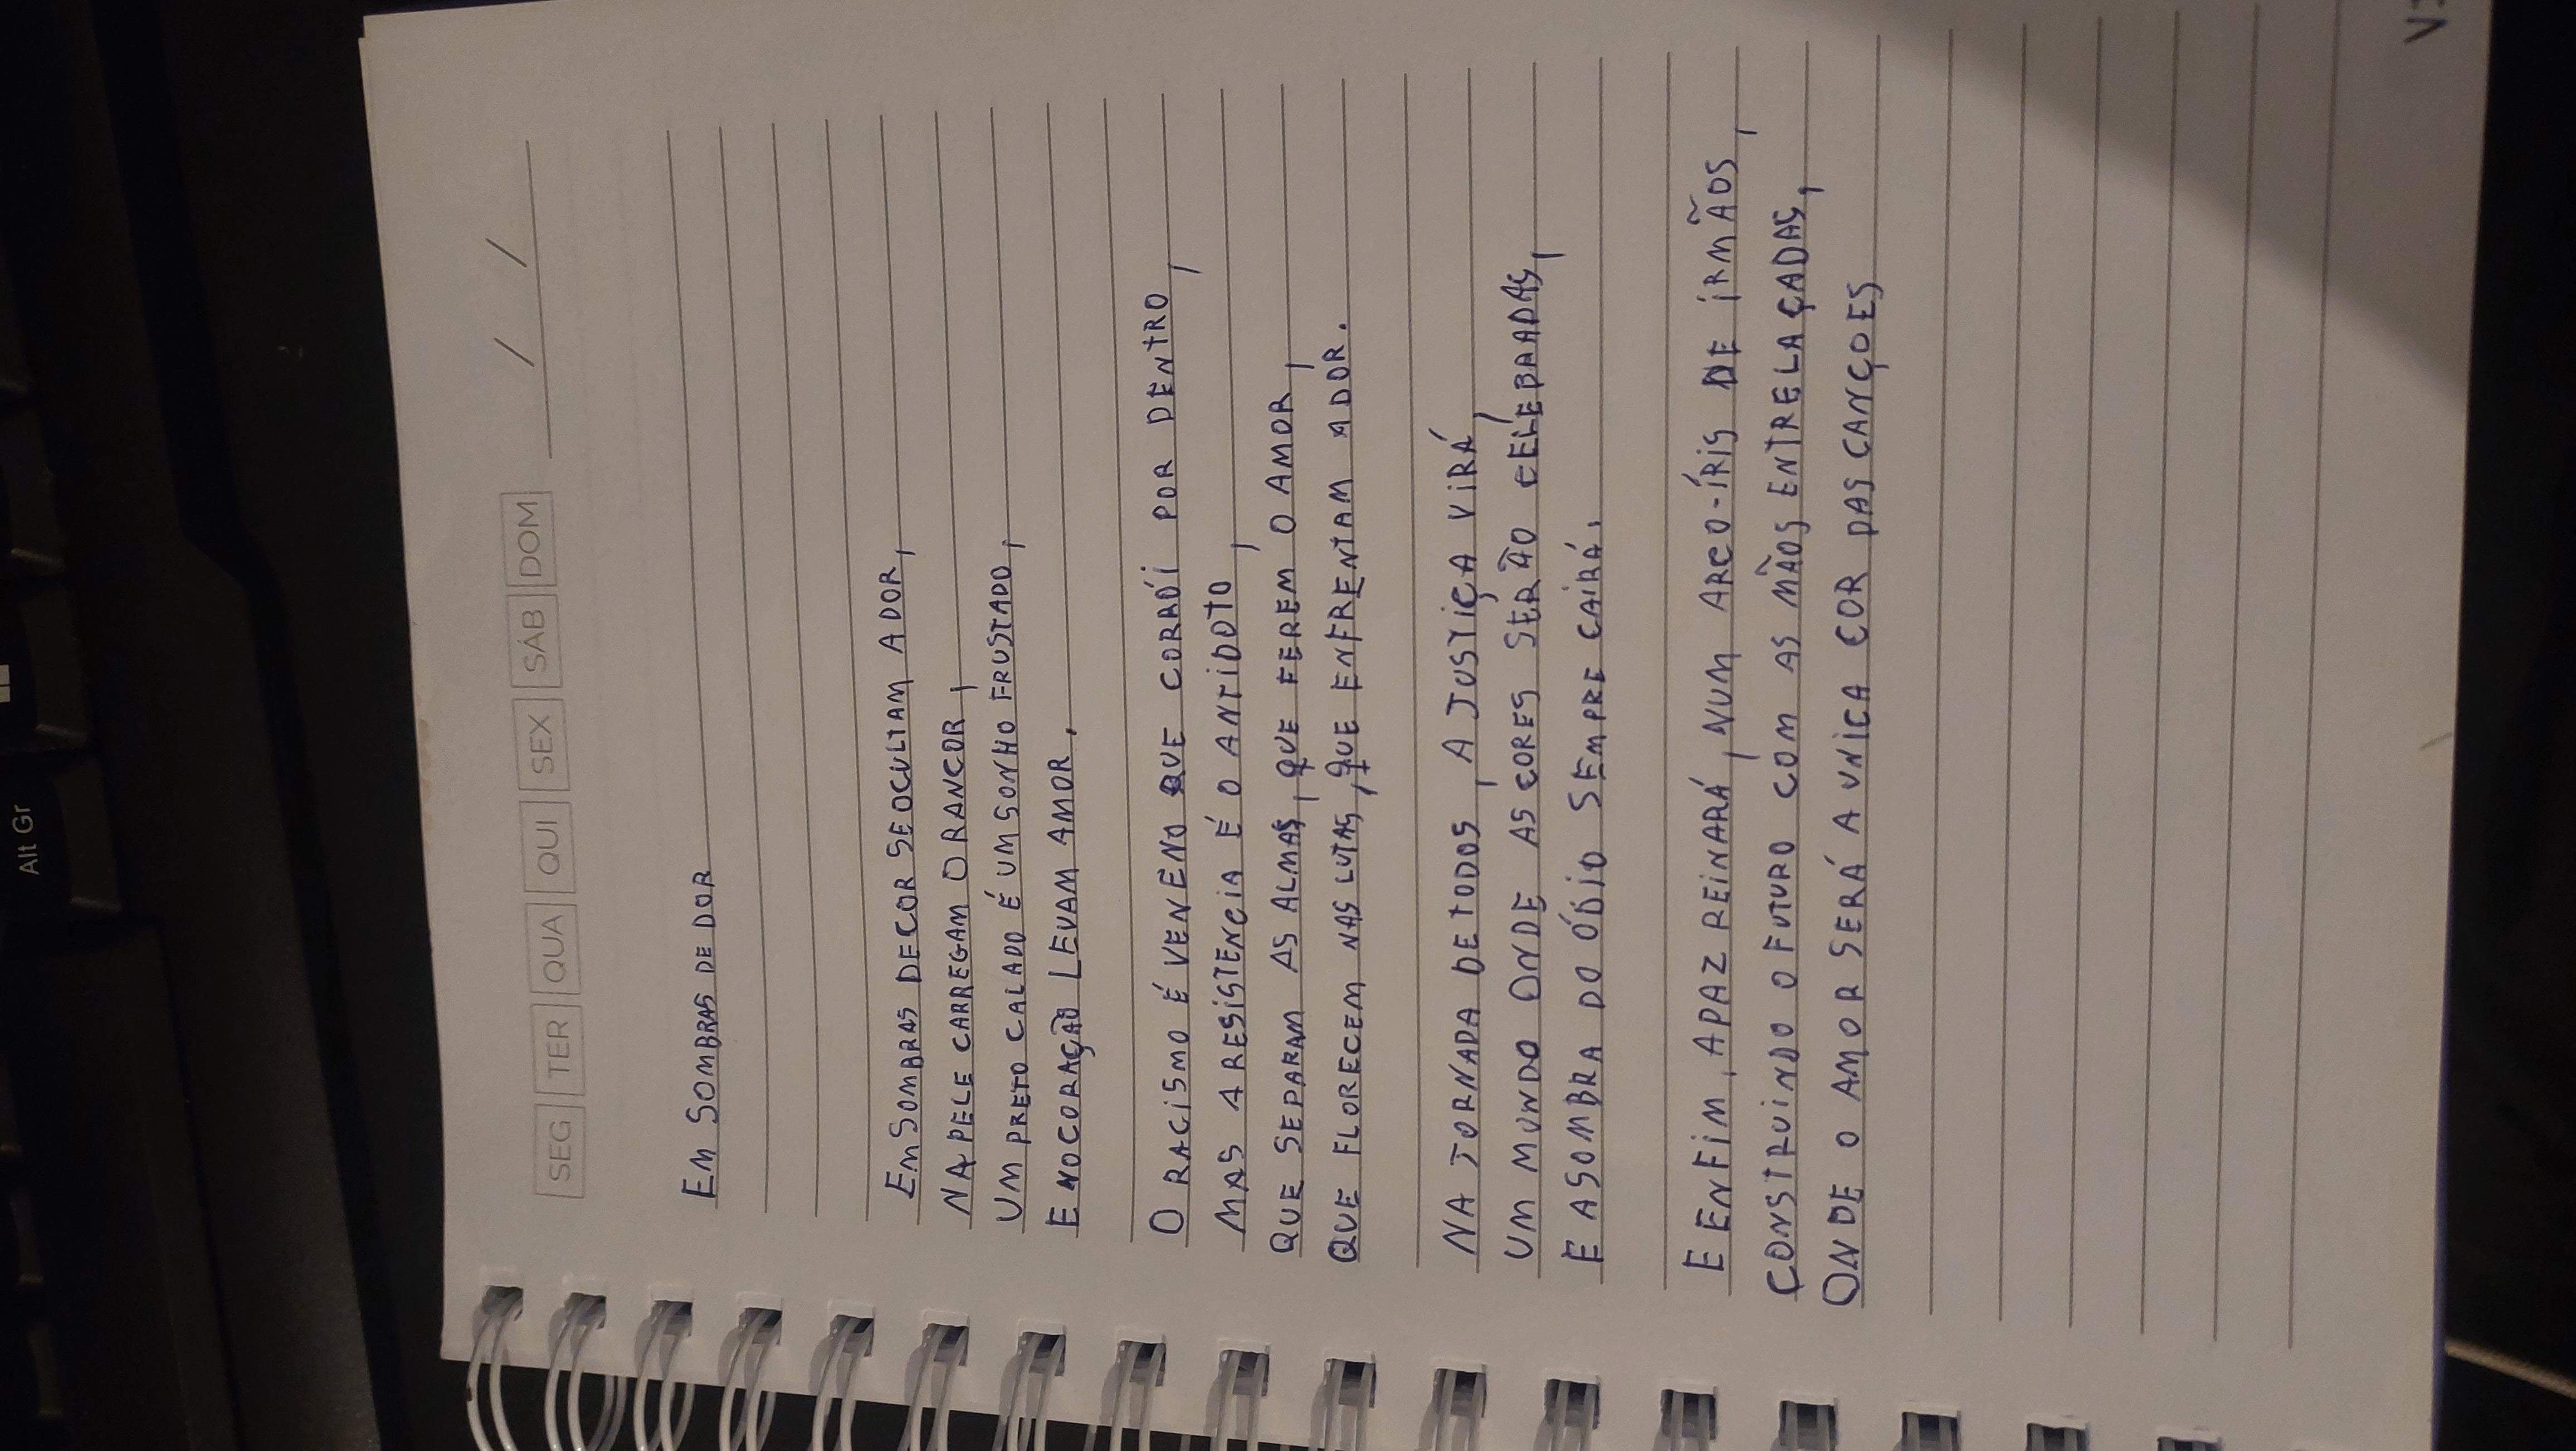 Alt Gr
SEG TER QUA QUI SEX SÁB DOM / /
EM SOMBRAS DE DOR
EM SOMBRAS DE COR SE OCULTAM A DOR,
NA PELE CARREGAM O RANCOR,
UM PRETO CALADO É UM SONHO FRUSTADO,
E NO CORAÇÃO LEVAM AMOR.
O RACISMO É VENENO QUE CORRÓI POR DENTRO,
MAS A RESISTENCIA É O ANTIDOTO,
QUE SEPARAM AS ALMAS, QUE FEREM O AMOR,
QUE FLORECEM NAS LUTAS, QUE ENFRENTAM A DOR.
NA JORNADA DE TODOS, A JUSTIÇA VIRÁ,
UM MUNDO ONDE AS CORES SERÃO CELEBRADAS,
E A SOMBRA DO ÓDIO SEMPRE CAIRÁ.
E ENFIM, A PAZ REINARÁ, NUM ARCO-ÍRIS DE IRMÃOS,
CONSTRUINDO O FUTURO COM AS MÃOS ENTRELAÇADAS,
ONDE O AMOR SERÁ A UNICA COR DAS CANÇOES